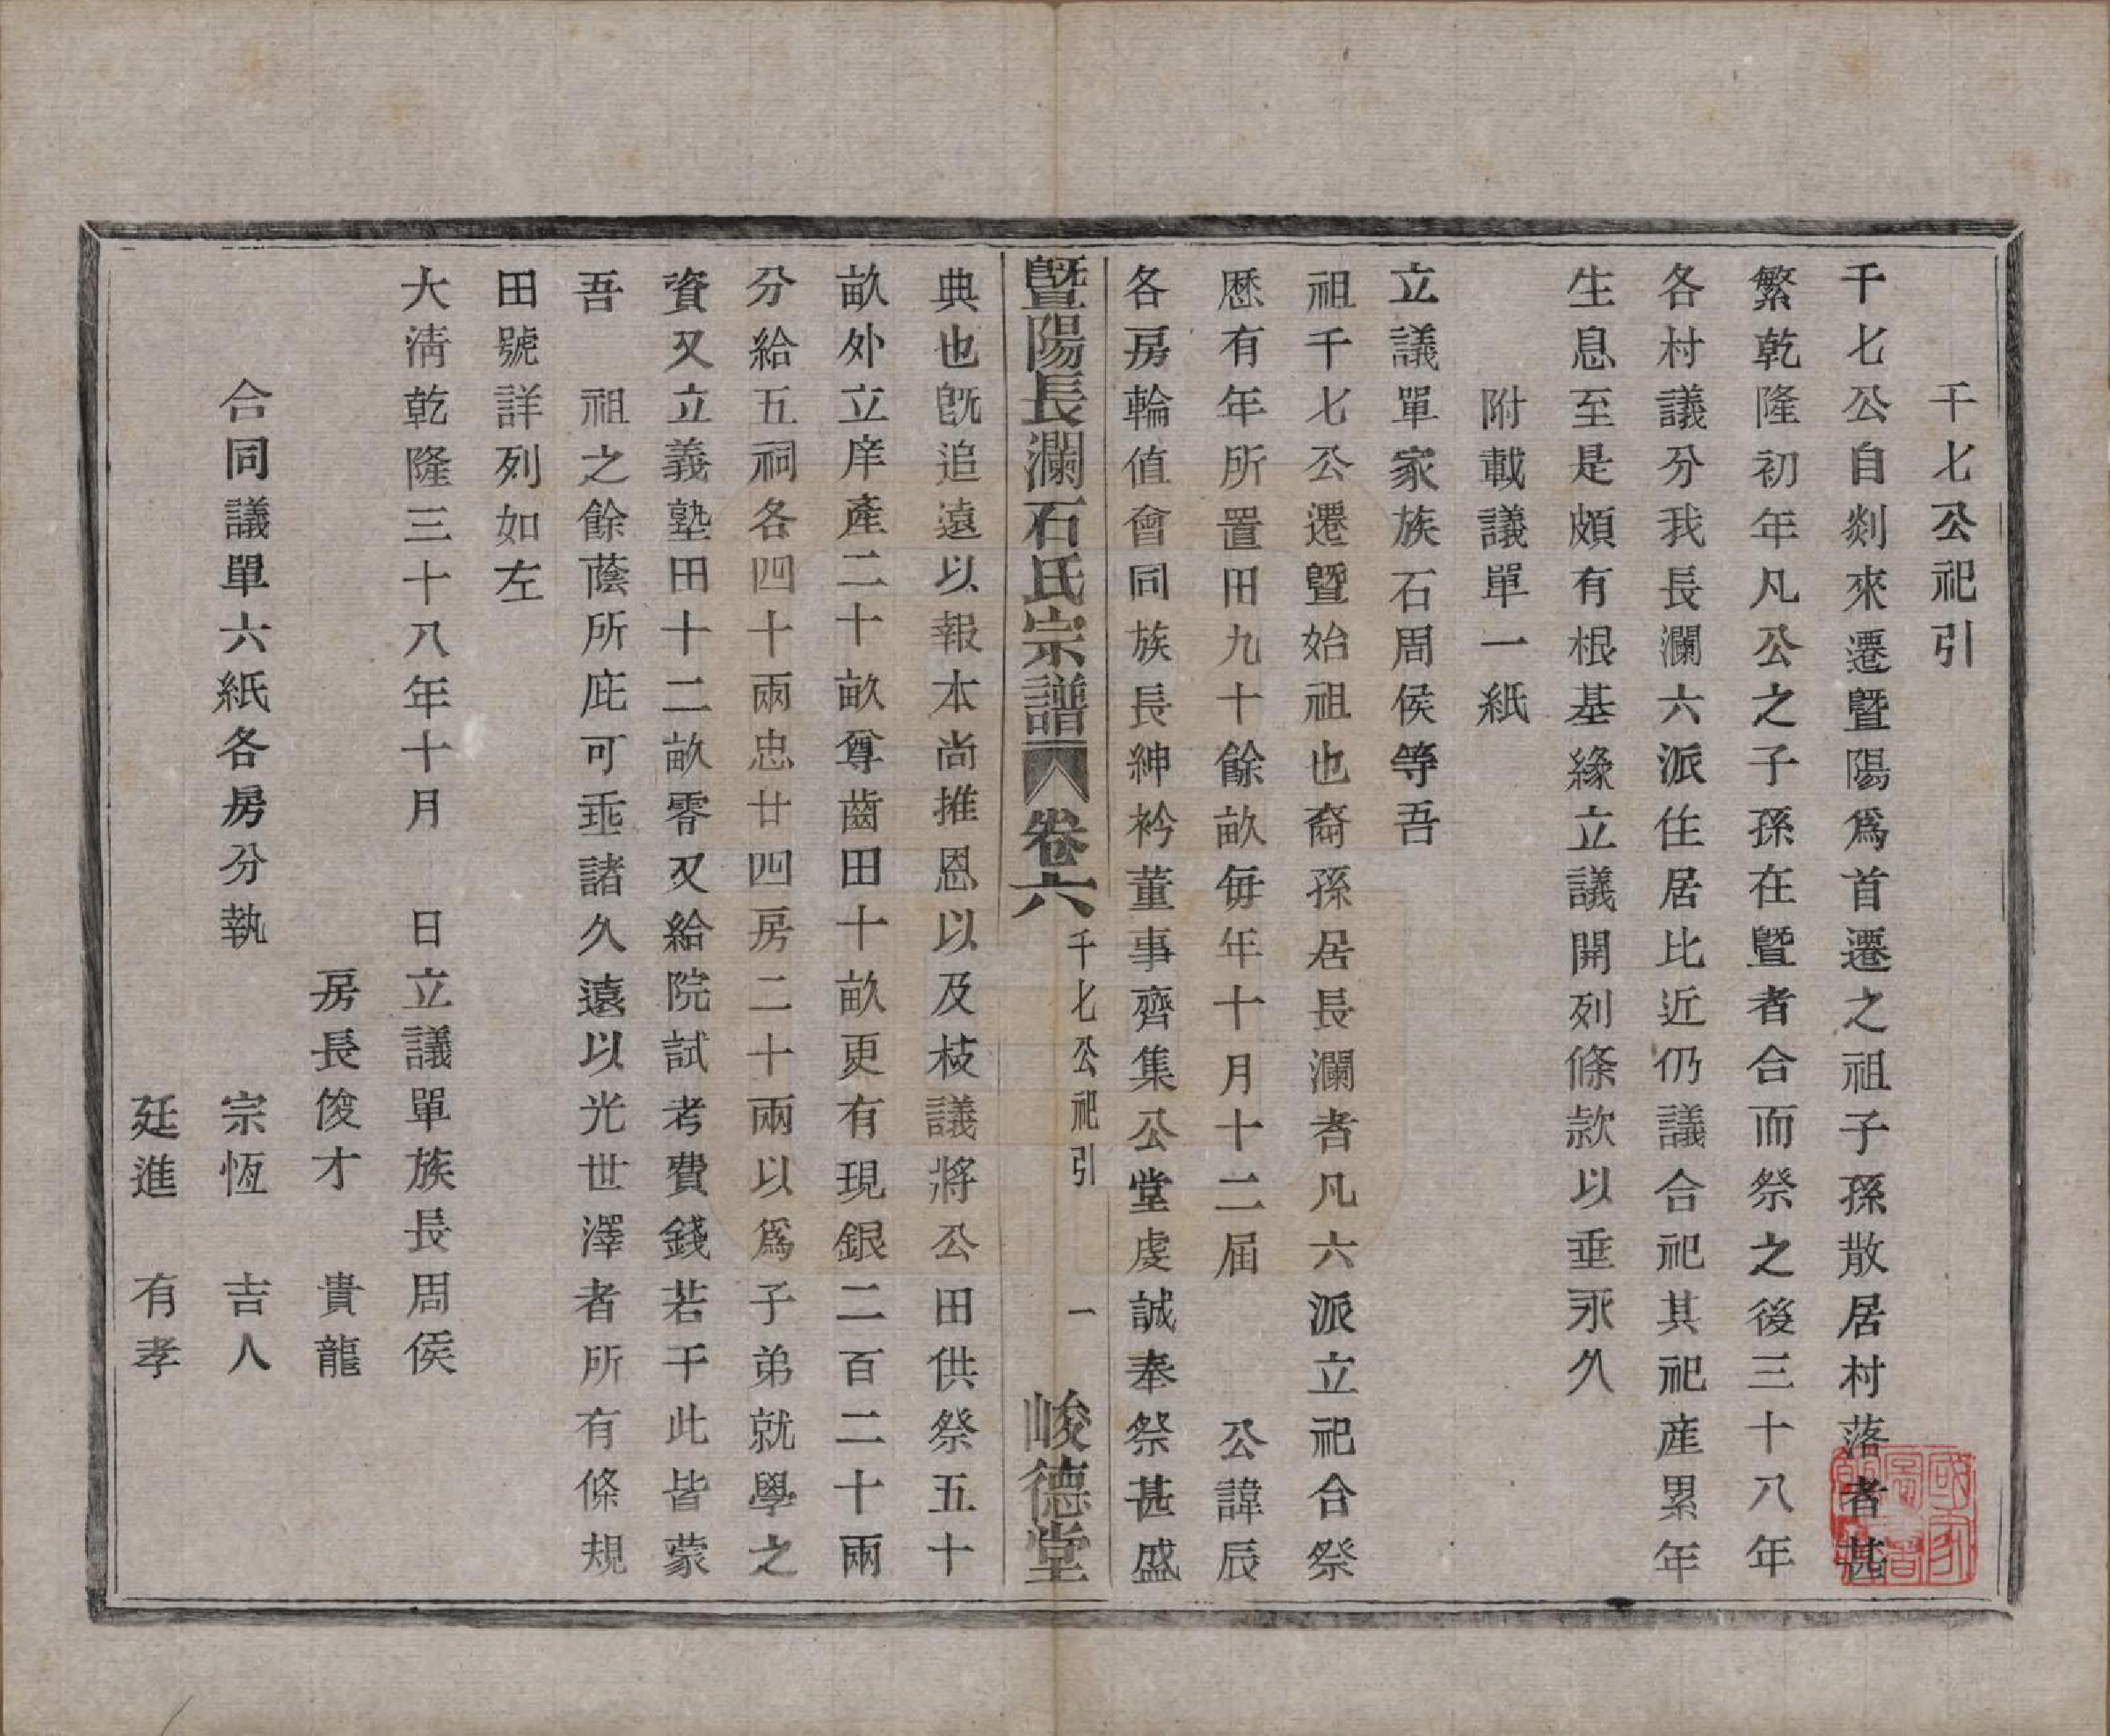 千七公祀引
千七公自剡來遷暨陽爲首遷之祖子孫散居村落者甚
繁乾隆初年凡公之子孫在暨者合而祭之後三十八年
各村議分我長瀾六派住居比近仍議合祀其祀産累年
生息至是頗有根基緣立議開列條款以垂永久
附載議單一紙
立議單家族石周侯等吾
祖千七公遷暨始祖也裔孫居長瀾者凡六派立祀合祭
歷有年所置田九十餘畝每年十月十二屆 公諱辰
各房輪值會同族長紳衿董事齊集公堂虔誠奉祭甚盛
暨陽長瀾石氏宗譜 卷六 千七公祀引 一 峻德堂
典也旣追遠以報本尚推恩以及枝議將公田供祭五十
畝外立庠產二十畝尊齒田十畝更有現銀二百二十兩
分給五祠各四十兩忠廿四房二十兩以爲子弟就學之
資又立義塾田十二畝零又給院試考費錢若干此皆蒙
吾 祖之餘蔭所庇可垂諸久遠以光世澤者所有條規
田號詳列如左
大淸乾隆三十八年十月 日立議單族長周侯
房長俊才 貴龍
合同議單六紙各房分執 宗恆 吉人
廷進 有孝